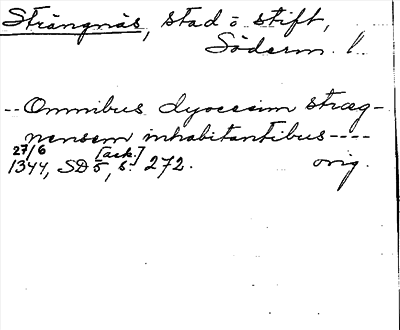 Strängnäs, stad o stift,
Söderm. l.
-- Omnibus dyocesim stræg-
nensem inhabitantibus ----
27/6 [ack.]
1344, SD 5, s. 272. orig.